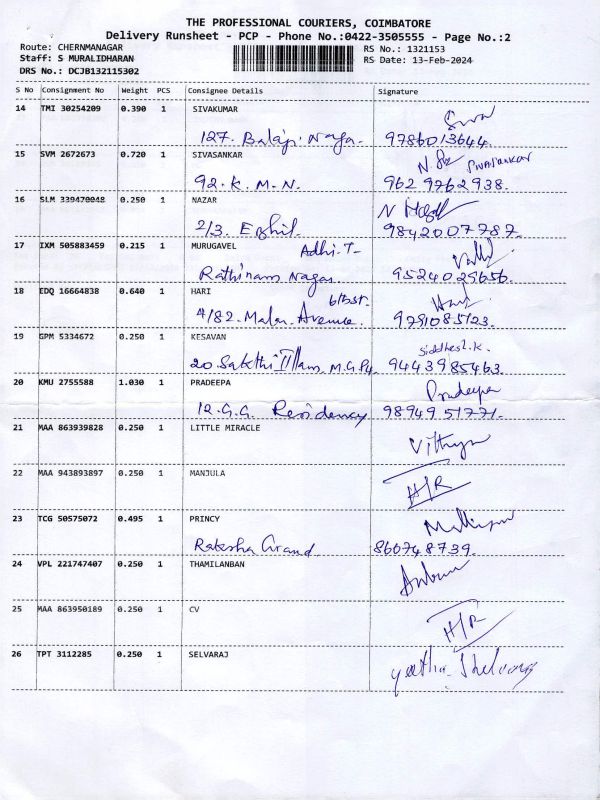 THE PROFESSIONAL COURIERS, COIMBATORE
Delivery Runsheet - PCP - Phone No.:0422-3505555 - Page No.:2
Route: CHERNMANAGAR
RS No.: 1321153
Staff: S MURALIDHARAN
RS Date: 13-Feb-2024
DRS No.: DCJB132115302
S No Consignment No Weight PCS Consignee Details Signature
14 TMI 30254209 0.390 1 SIVAKUMAR Siva
127. Balaji Naga. 9786013644.
15 SVM 2672673 0.720 1 SIVASANKAR N. Sivasankar
92. K. M. N. 9629762938.
16 SLM 339470048 0.250 1 NAZAR
2/3. Ezhil. 9842007787.
17 IXM 505883459 0.215 1 MURUGAVEL Adhi. T-
Rathinam Nagar. 9524029656.
18 EDQ 16664838 0.640 1 HARI Hari
4/82. Malar. Avenue. 9791085123.
19 GPM 5334672 0.250 1 KESAVAN Siddhesh. K.
20 Sakthi Illam M.G. 9443985463.
20 KMU 2755588 1.030 1 PRADEEPA Pradeepa
12. G.G. Residency 9894951771.
21 MAA 863939828 0.250 1 LITTLE MIRACLE Vithya
22 MAA 943893897 0.250 1 MANJULA H/R
23 TCG 50575072 0.495 1 PRINCY
Raksha Grand 860748739.
24 VPL 221747407 0.250 1 THAMILANBAN
25 MAA 863950189 0.250 1 CV H/R
26 TPT 3112285 0.250 1 SELVARAJ